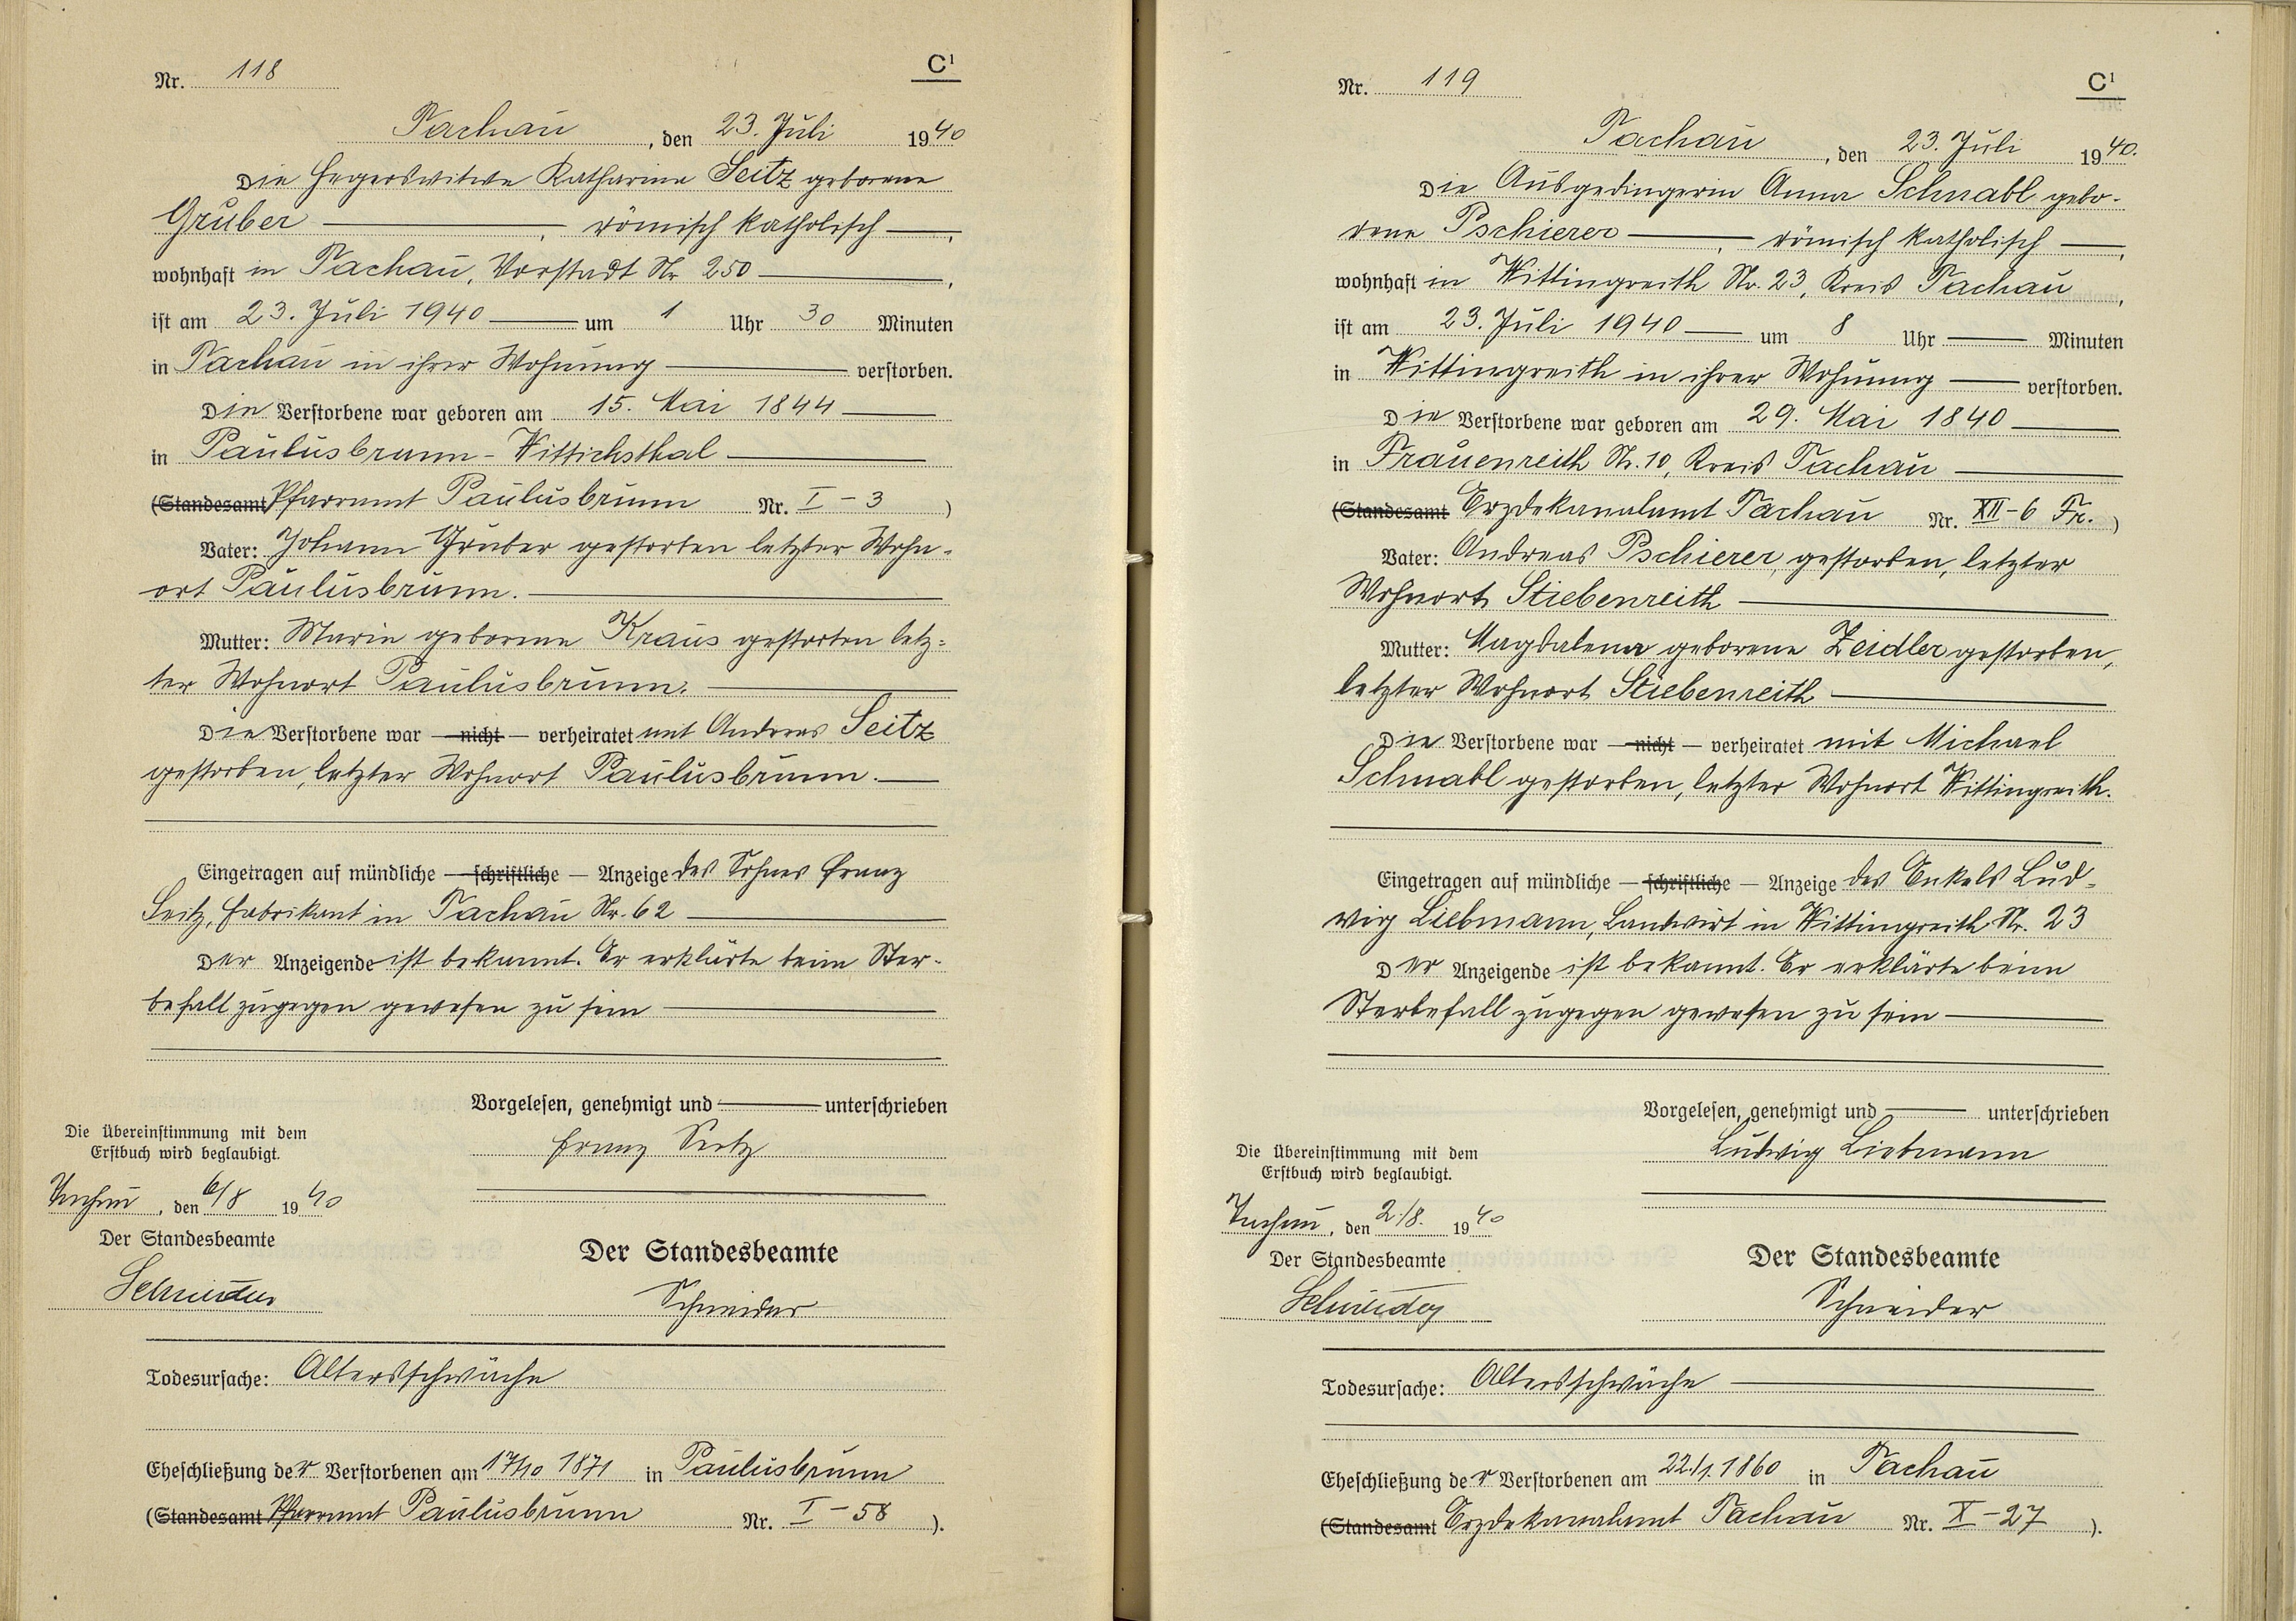 Nr. 118
C¹
Tachau, den 23. Juli 1940
Die Hegerswitwe Katharina Seitz geborene
Gruber ———, römisch katholisch ——,
wohnhaft in Tachau, Vorstadt Nr 250 ———,
ist am 23. Juli 1940 —— um 1 Uhr 30 Minuten
in Tachau in ihrer Wohnung ——— verstorben.
Die Verstorbene war geboren am 15. Mai 1844 ——
in Paulusbrunn - Wittichsthal ———
(Standesamt Pfarramt Paulusbrunn Nr. I - 3 )
Vater: Johann Gruber gestorben letzter Wohn-
ort Paulusbrunn. ———
Mutter: Marie geborene Kraus gestorben letz-
ter Wohnort Paulusbrunn. ———
Die Verstorbene war — nicht — verheiratet mit Andreas Seitz
gestorben, letzter Wohnort Paulusbrunn. ——
Eingetragen auf mündliche — schriftliche — Anzeige des Sohnes Franz
Seitz, Fabrikant in Tachau Nr. 62 ———
Der Anzeigende ist bekannt. Er erklärte beim Ster-
befall zugegen gewesen zu sein ———
Vorgelesen, genehmigt und ——— unterschrieben
Franz Seitz
Die Übereinstimmung mit dem
Erstbuch wird beglaubigt.
Tachau, den 6/8 1940
Der Standesbeamte
Schneider
Der Standesbeamte
Schneider
Todesursache: Altersschwäche
Eheschließung der Verstorbenen am 17/10 1871 in Paulusbrunn
(Standesamt Pfarramt Paulusbrunn Nr. I - 58 ).
Nr. 119
C¹
Tachau, den 23. Juli 1940.
Die Ausgedingerin Anna Schnabl gebo-
rene Pschierer ———, römisch katholisch ——,
wohnhaft in Wittingreith Nr. 23, Kreis Tachau,
ist am 23. Juli 1940 —— um 8 Uhr ——— Minuten
in Wittingreith in ihrer Wohnung —— verstorben.
Die Verstorbene war geboren am 29. Mai 1840 ———
in Frauenreith Nr. 10, Kreis Tachau ———
(Standesamt Erzdekanalamt Tachau Nr. XII - 6 Fr. )
Vater: Andreas Pschierer, gestorben, letzter
Wohnort Stiebenreith ———
Mutter: Magdalena geborene Zeidler gestorben,
letzter Wohnort Stiebenreith ———
Die Verstorbene war — nicht — verheiratet mit Michael
Schnabl gestorben, letzter Wohnort Wittingreith.
Eingetragen auf mündliche — schriftliche — Anzeige des Enkels Lud-
wig Liebmann, Landwirt in Wittingreith Nr. 23
Der Anzeigende ist bekannt. Er erklärte beim
Sterbefall zugegen gewesen zu sein ———
Vorgelesen, genehmigt und ——— unterschrieben
Ludwig Liebmann
Die Übereinstimmung mit dem
Erstbuch wird beglaubigt.
Tachau, den 2./8. 1940
Der Standesbeamte
Schneider
Der Standesbeamte
Schneider
Todesursache: Altersschwäche ———
Eheschließung der Verstorbenen am 22./1. 1860 in Tachau
(Standesamt Erzdekanalamt Tachau Nr. X - 27 ).